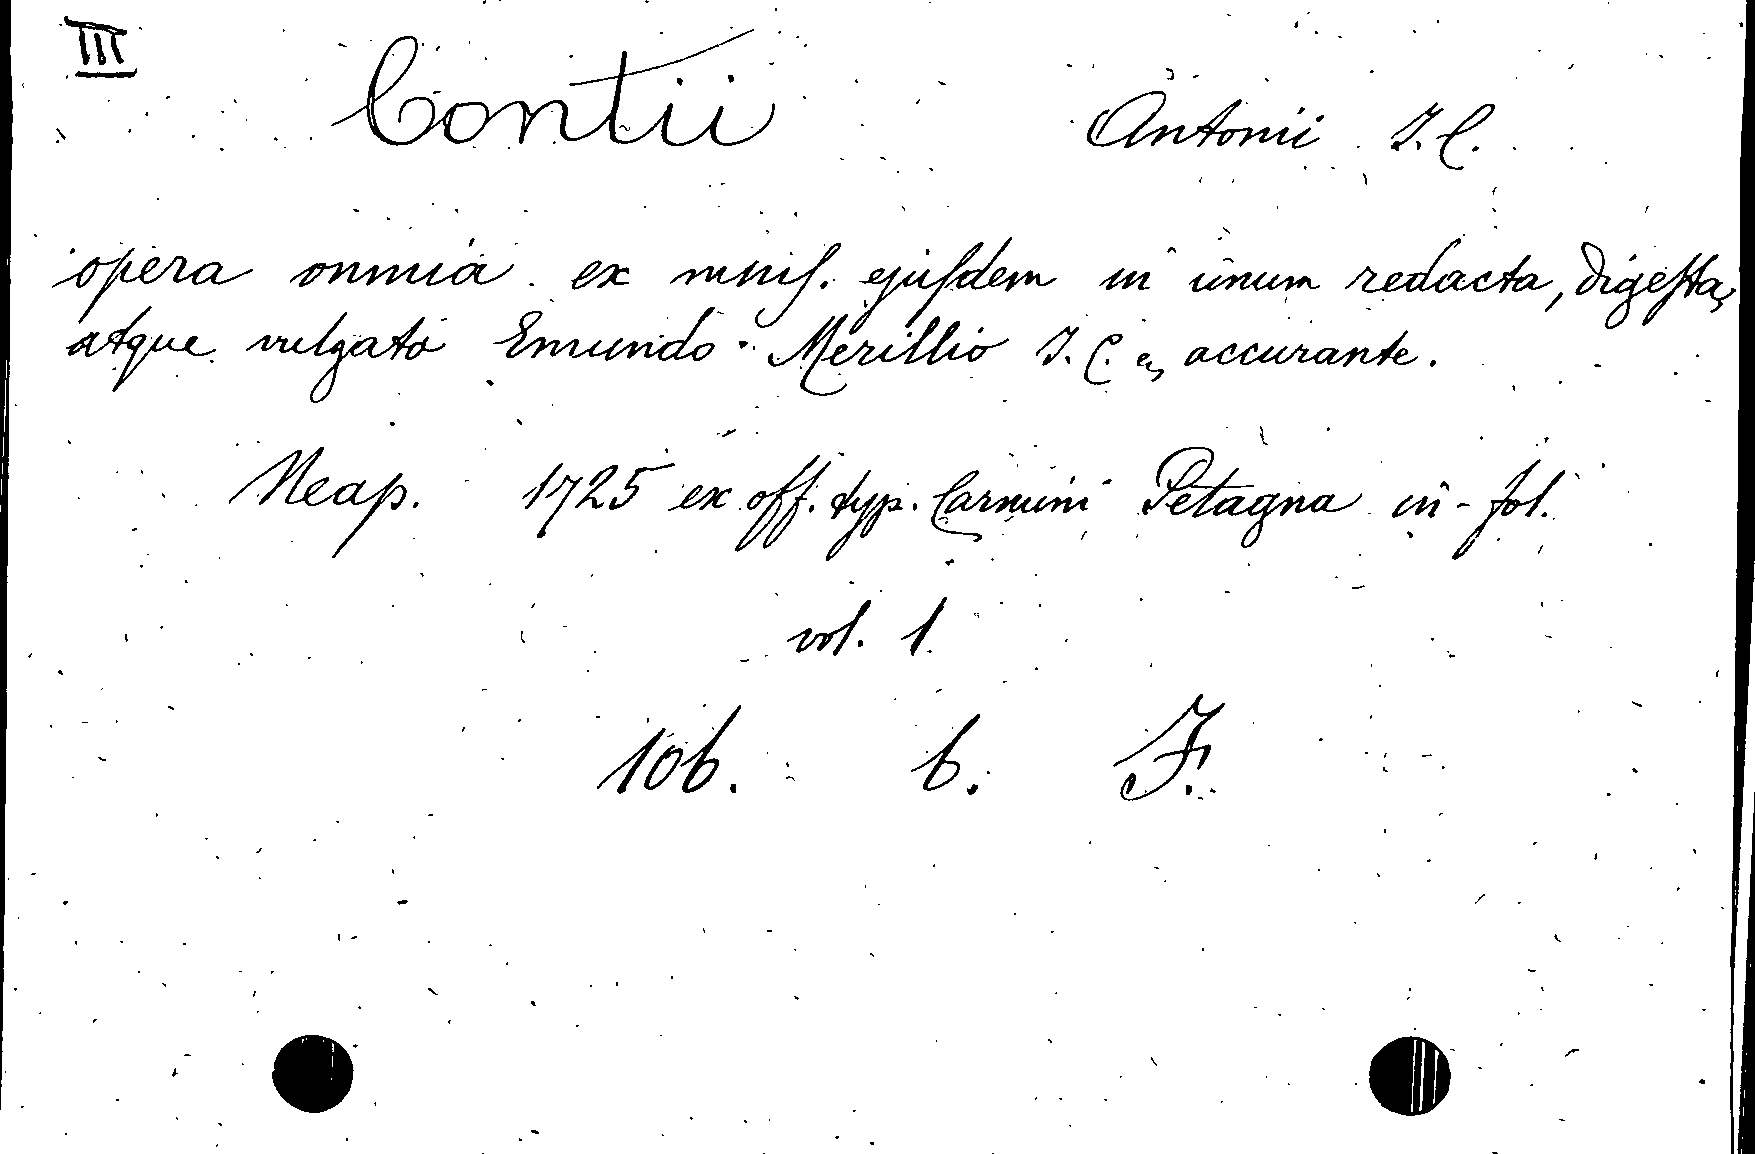 III
Contii Antonii J. C.
opera omnia ex mnis. ejusdem in unum redacta, digesta,
atque vulgato Emundo Merillio J. C. accurante.
Neap. 1725 ex off. typ. Carmini Petagna in-fol.
vol. 1.
106. 6. F.